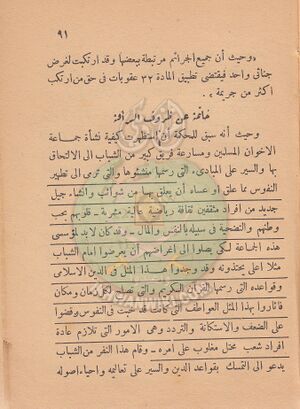 ٩١
«وحيث أن جميع الجرائم مرتبطة ببعضها وقد ارتكبت لغرض
جنائى واحد فيقتضى تطبيق المادة ٣٢ عقوبات فى حق من ارتكب
اكثر من جريمة» .
خاتمة عن ظروف الرأفة :
وحيث أنه سبق للمحكمة أن استظهرت كيفية نشأة جماعة
الاخوان المسلمين ومسارعة فريق كبير من الشباب الى الالتحاق
بها والسير على المبادىء التى رسمها منشئوها والتى ترمى الى تطهير
النفوس مما علق أو عساه أن يعلق بها من شوائب وانشاء جيل
جديد من أفراد مثقفين ثقافة رياضية عالية مشربة قلوبهم بحب
وطنهم والتضحية فى سبيله بالنفس والمال - وقد كان لابد لمؤسسى
هذه الجماعة لكى يصلوا الى اغراضهم أن يعرضوا امام الشباب
مثلا اعلى يحتذونه وقد وجدوا هذا المثل فى الدين الاسلامى
وقواعده التى رسمها القرآن الكريم والتى تصلح لكل زمان ومكان
فأثاروا بهذا المثل العواطف التى كانت قد خبت فى النفوس وقضوا
على الضعف والاستكانة والتردد وهى الامور التى تلازم عادة
أفراد شعب محتل مغلوب على امره - وقام هذا النفر من الشباب
يدعو الى التمسك بقواعد الدين والسير على تعاليمه واحياء اصوله